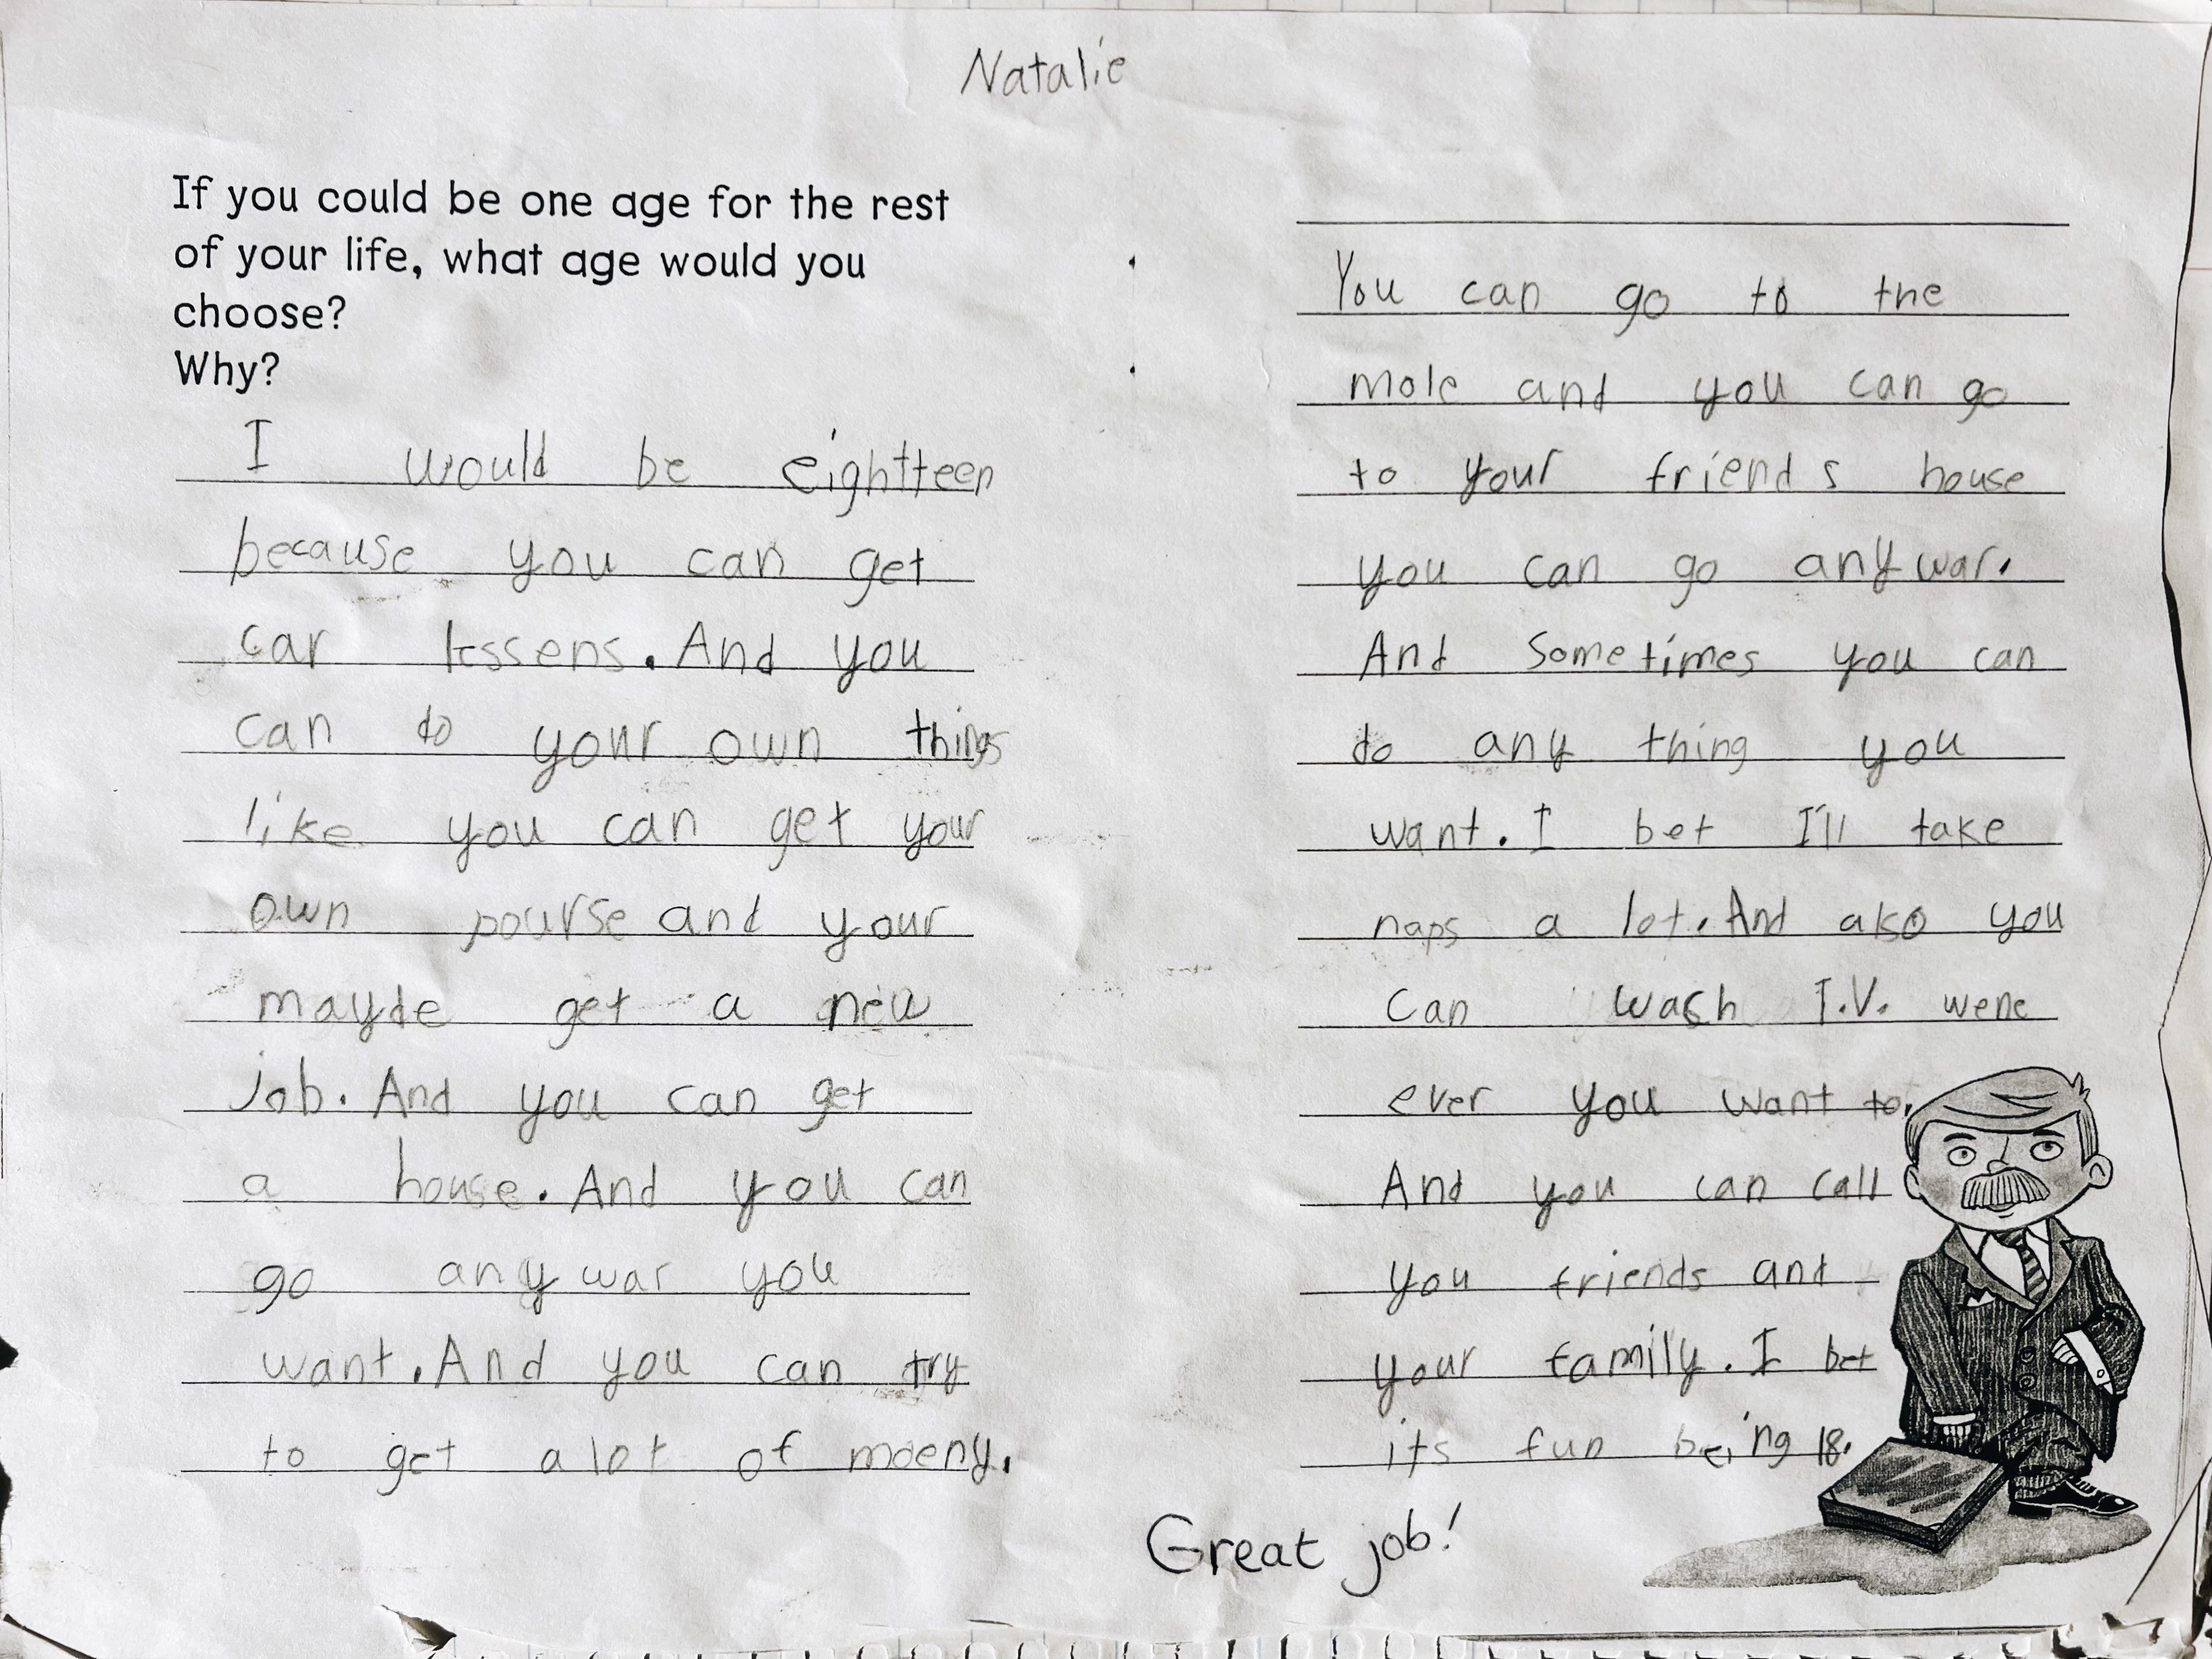 Natalie
If you could be one age for the rest
of your life, what age would you
choose?
Why?
I would be eightteen
because you can get
car lessens. And you
can do your own things
like you can get your
own pourse and your
mayde get a new
job. And you can get
a house. And you can
go any war you
want. And you can try
to get a lot of moeny.
You can go to the
mole and you can go
to your friend s house
you can go any war.
And Sometimes you can
do any thing you
want. I bet I'll take
naps a lot. And also you
Can wach T.V. wene
ever you want to.
And you can call
you friends and
your family. I bet
its fun being 18.
Great job!